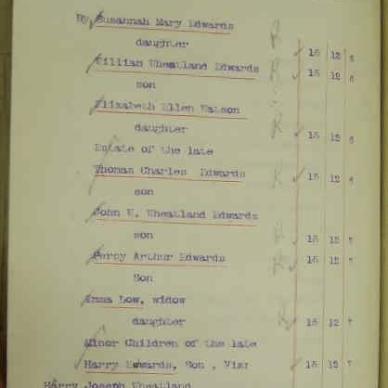 By Susannah Mary Edwards
daughter 15 12 6
William Wheatland Edwards
son 15 12 6
Elizabeth Ellen Watson
daughter 15 12 6
Estate of the late
Thomas Charles Edwards 15 12 6
son
John W. Wheatland Edwards
son 15 12 7
Percy Arthur Edwards 15 12 7
Son
Emma Low, widow
daughter 15 12 7
Minor Children of the late
Harry Edwards, Son, 15 12 7
Harry Joseph Wheatland